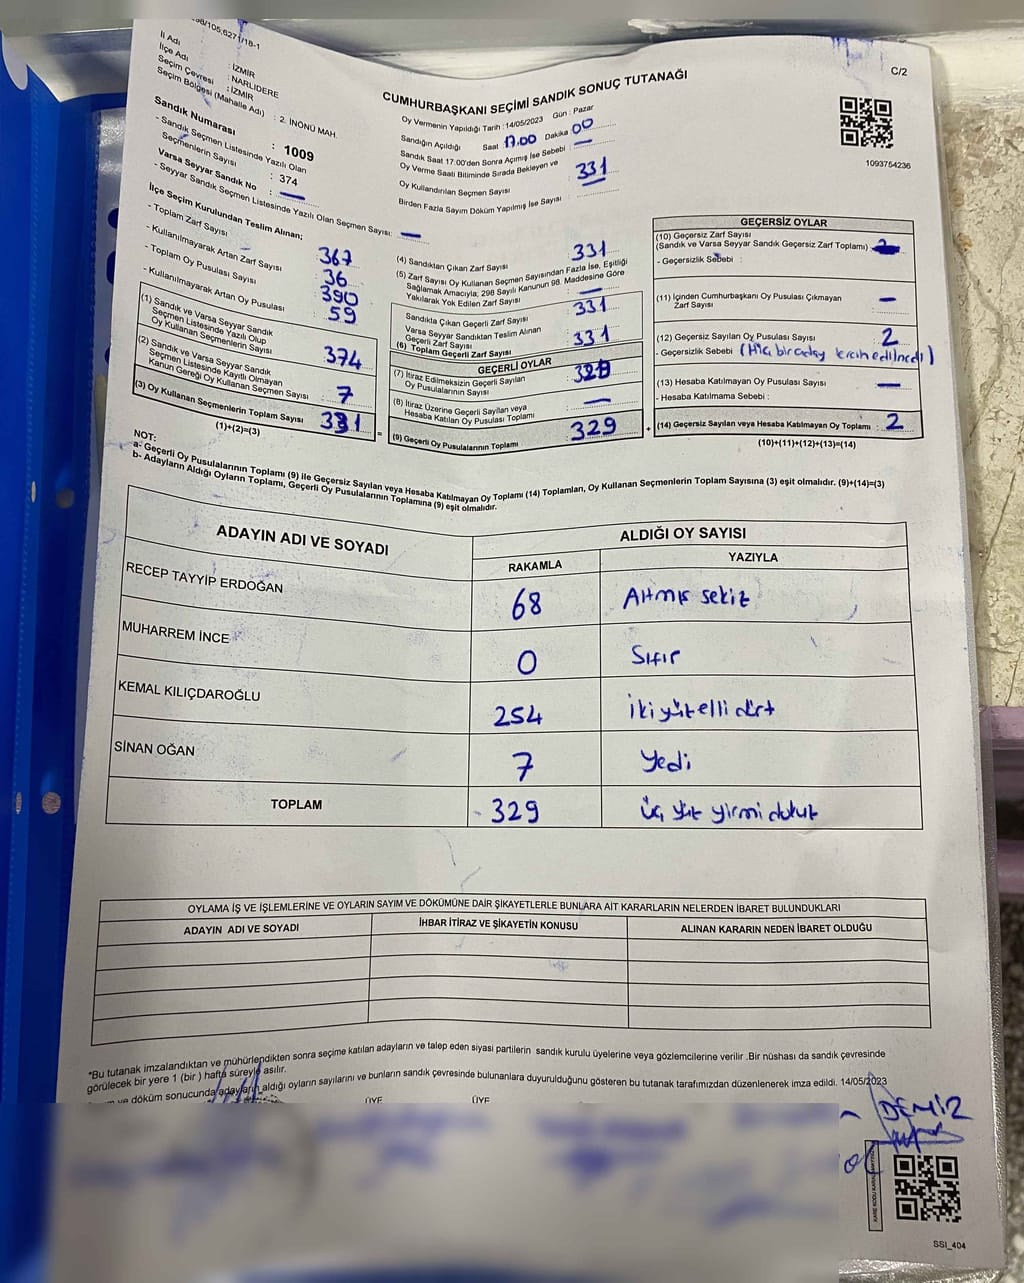 98/105,6271/18-1
C/2
İl Adı : İZMİR
İlçe Adı : NARLIDERE
Seçim Çevresi : İZMİR
Seçim Bölgesi (Mahalle Adı) : 2. İNÖNÜ MAH.
CUMHURBAŞKANI SEÇİMİ SANDIK SONUÇ TUTANAĞI
Oy Vermenin Yapıldığı Tarih : 14/05/2023 Gün : Pazar
Sandığın Açıldığı Saat 17.00 Dakika 00
Sandık Saat 17:00'den Sonra Açımış İse Sebebi : —
Oy Verme Saati Bitiminde Sırada Bekleyen ve
Oy Kullandırılan Seçmen Sayısı : 331
Birden Fazla Sayım Döküm Yapılmış İse Sayısı :
1093754236
Sandık Numarası : 1009
- Sandık Seçmen Listesinde Yazılı Olan
Seçmenlerin Sayısı : 374
Varsa Seyyar Sandık No : —
- Seyyar Sandık Seçmen Listesinde Yazılı Olan Seçmen Sayısı: —
İlçe Seçim Kurulundan Teslim Alınan;
- Toplam Zarf Sayısı : 367
- Kullanılmayarak Artan Zarf Sayısı : 36
- Toplam Oy Pusulası Sayısı : 390
- Kullanılmayarak Artan Oy Pusulası : 59
(1) Sandık ve Varsa Seyyar Sandık
Seçmen Listesinde Yazılı Olup
Oy Kullanan Seçmenlerin Sayısı : 374
(2) Sandık ve Varsa Seyyar Sandık
Seçmen Listesinde Kayıtlı Olmayan
Kanun Gereği Oy Kullanan Seçmen Sayısı : 7
(3) Oy Kullanan Seçmenlerin Toplam Sayısı : 331
(1)+(2)=(3)
(4) Sandıktan Çıkan Zarf Sayısı : 331
(5) Zarf Sayısı Oy Kullanan Seçmen Sayısından Fazla İse, Eşitliği
Sağlamak Amacıyla, 298 Sayılı Kanunun 98. Maddesine Göre
Yakılarak Yok Edilen Zarf Sayısı : —
Sandıkta Çıkan Geçerli Zarf Sayısı : 331
Varsa Seyyar Sandıktan Teslim Alınan
Geçerli Zarf Sayısı :
(6) Toplam Geçerli Zarf Sayısı : 331
GEÇERLİ OYLAR
(7) İtiraz Edilmeksizin Geçerli Sayılan
Oy Pusulalarının Sayısı :
(8) İtiraz Üzerine Geçerli Sayılan veya
Hesaba Katılan Oy Pusulası Toplamı : —
(9) Geçerli Oy Pusulalarının Toplamı : 329
GEÇERSİZ OYLAR
(10) Geçersiz Zarf Sayısı
(Sandık ve Varsa Seyyar Sandık Geçersiz Zarf Toplamı) :
- Geçersizlik Sebebi :
(11) İçinden Cumhurbaşkanı Oy Pusulası Çıkmayan
Zarf Sayısı : —
(12) Geçersiz Sayılan Oy Pusulası Sayısı : 2
- Geçersizlik Sebebi : (Hiç bir aday tercih edilmedi)
(13) Hesaba Katılmayan Oy Pusulası Sayısı : —
- Hesaba Katılmama Sebebi :
(14) Geçersiz Sayılan veya Hesaba Katılmayan Oy Toplamı : 2
(10)+(11)+(12)+(13)=(14)
NOT:
a- Geçerli Oy Pusulalarının Toplamı (9) ile Geçersiz Sayılan veya Hesaba Katılmayan Oy Toplamı (14) Toplamları, Oy Kullanan Seçmenlerin Toplam Sayısına (3) eşit olmalıdır. (9)+(14)=(3)
b- Adayların Aldığı Oyların Toplamı, Geçerli Oy Pusulalarının Toplamına (9) eşit olmalıdır.
ADAYIN ADI VE SOYADI ALDIĞI OY SAYISI
RAKAMLA YAZIYLA
RECEP TAYYİP ERDOĞAN 68 Altmış sekiz
MUHARREM İNCE 0 Sıfır
KEMAL KILIÇDAROĞLU 254 iki yüz elli dört
SİNAN OĞAN 7 Yedi
TOPLAM 329 üç yüz yirmi dokuz
OYLAMA İŞ VE İŞLEMLERİNE VE OYLARIN SAYIM VE DÖKÜMÜNE DAİR ŞİKAYETLERLE BUNLARA AİT KARARLARIN NELERDEN İBARET BULUNDUKLARI
ADAYIN ADI VE SOYADI İHBAR İTİRAZ VE ŞİKAYETİN KONUSU ALINAN KARARIN NEDEN İBARET OLDUĞU
*Bu tutanak imzalandıktan ve mühürlendikten sonra seçime katılan adayların ve talep eden siyasi partilerin sandık kurulu üyelerine veya gözlemcilerine verilir .Bir nüshası da sandık çevresinde
görülecek bir yere 1 (bir ) hafta süreyle asılır.
ve döküm sonucunda adayların aldığı oyların sayılarını ve bunların sandık çevresinde bulunanlara duyurulduğunu gösteren bu tutanak tarafımızdan düzenlenerek imza edildi. 14/05/2023
ÜYE ÜYE
DEMİR
SSI_404